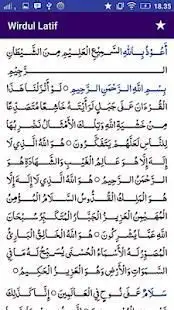 18.35
Wirdul Latif
أَعُوْذُ بِاللهِ السَّمِيْعِ الْعَلِيْمِ مِنَ الشَّيْطَانِ
الرَّجِيْمِ
بِسْمِ اللهِ الرَّحْمٰنِ الرَّحِيْمِ ۞ لَوْ أَنْزَلْنَا هٰذَا
الْقُرْءَانَ عَلَى جَبَلٍ لَرَأَيْتَهُ خَاشِعًا مُتَصَدِّعًا
مِنْ خَشْيَةِ اللهِ وَتِلْكَ الْأَمْثَالُ نَضْرِبُهَا لِلنَّاسِ
لَعَلَّهُمْ يَتَفَكَّرُوْنَ ۞ هُوَ اللهُ الَّذِيْ لَا إِلٰهَ
إِلَّا هُوَ عَالِمُ الْغَيْبِ وَالشَّهَادَةِ هُوَ
الرَّحْمٰنُ الرَّحِيْمُ ۞ هُوَ اللهُ الَّذِيْ لَا إِلٰهَ
إِلَّا هُوَ الْمَلِكُ الْقُدُّوْسُ السَّلَامُ الْمُؤْمِنُ
الْمُهَيْمِنُ الْعَزِيْزُ الْجَبَّارُ الْمُتَكَبِّرُ سُبْحَانَ اللهِ
عَمَّا يُشْرِكُوْنَ ۞ هُوَ اللهُ الْخَالِقُ الْبَارِئُ
الْمُصَوِّرُ لَهُ الْأَسْمَاءُ الْحُسْنَى يُسَبِّحُ لَهُ مَا فِي
السَّمٰوَاتِ وَالْأَرْضِ وَهُوَ الْعَزِيْزُ الْحَكِيْمُ ۞
سَلَامٌ عَلَى نُوْحٍ فِي الْعَالَمِيْنَ ۞ إِنَّا كَذٰلِكَ